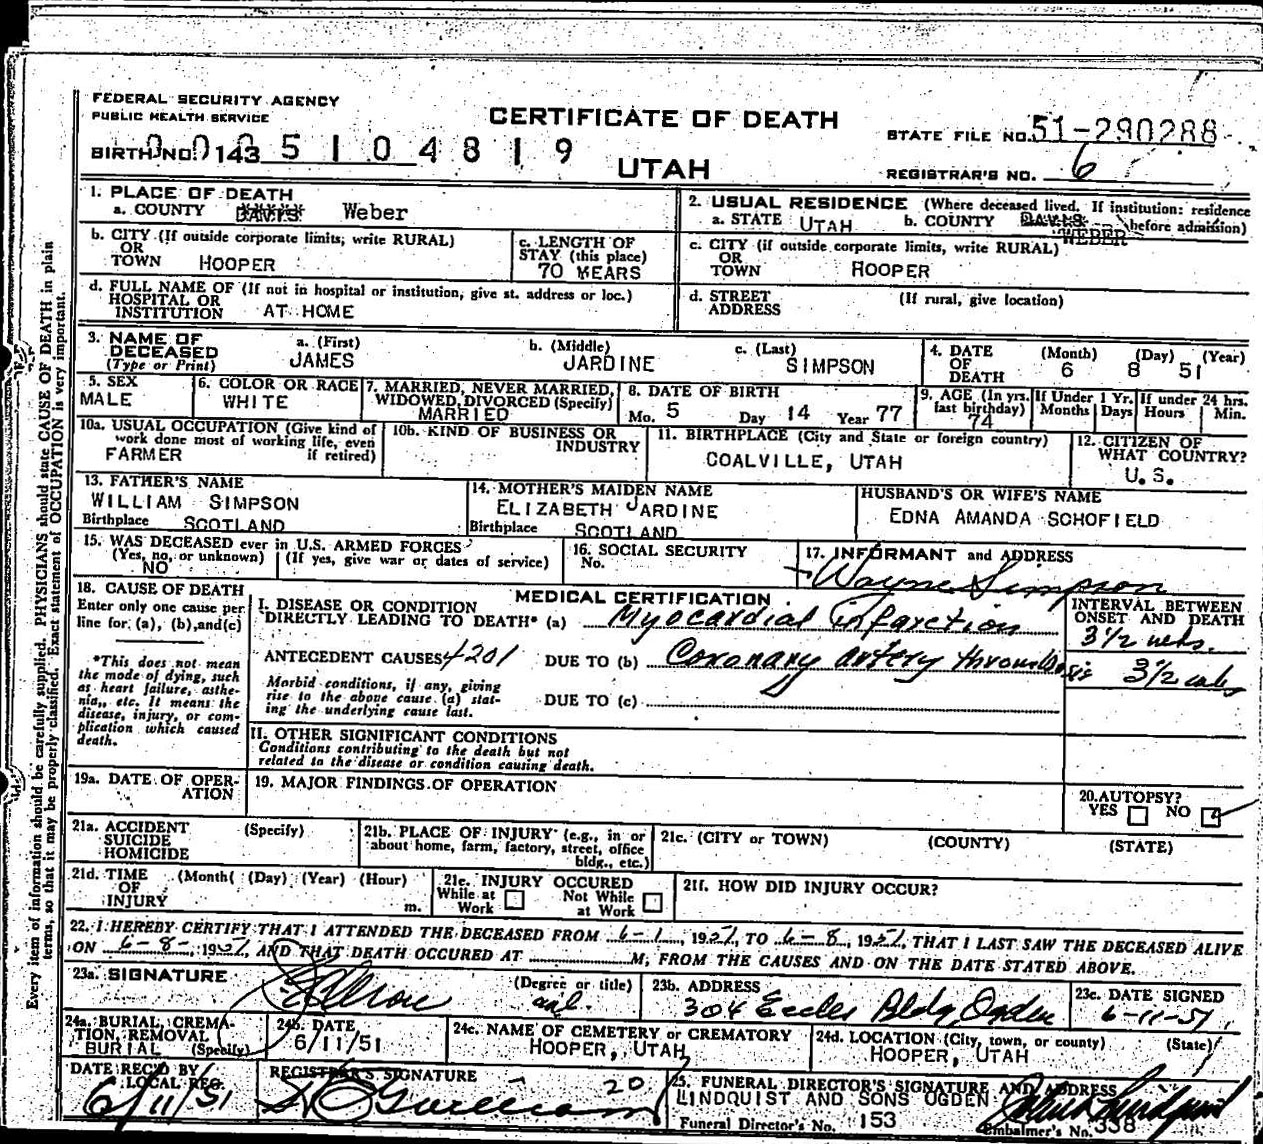 FEDERAL SECURITY AGENCY
PUBLIC HEALTH SERVICE
CERTIFICATE OF DEATH
UTAH
STATE FILE NO. 51-290288
REGISTRAR'S NO. 6
BIRTH NO. 143
0025104819
1. PLACE OF DEATH
a. COUNTY DAVIS Weber
2. USUAL RESIDENCE (Where deceased lived. If institution: residence before admission)
a. STATE UTAH b. COUNTY DAVIS WEBER
b. CITY (If outside corporate limits, write RURAL)
OR
TOWN HOOPER
c. LENGTH OF
STAY (this place)
70 YEARS
c. CITY (if outside corporate limits, write RURAL)
OR
TOWN HOOPER
d. FULL NAME OF (If not in hospital or institution, give st. address or loc.)
HOSPITAL OR
INSTITUTION AT HOME
d. STREET (If rural, give location)
ADDRESS
3. NAME OF
DECEASED
(Type or Print)
a. (First) b. (Middle) c. (Last)
JAMES JARDINE SIMPSON
4. DATE
OF
DEATH
(Month) (Day) (Year)
6 8 51
5. SEX
MALE
6. COLOR OR RACE
WHITE
7. MARRIED, NEVER MARRIED,
WIDOWED, DIVORCED (Specify)
MARRIED
8. DATE OF BIRTH
Mo. 5 Day 14 Year 77
9. AGE (In yrs.
last birthday)
74
If Under 1 Yr.
Months Days
If under 24 hrs.
Hours Min.
10a. USUAL OCCUPATION (Give kind of
work done most of working life, even
if retired)
FARMER
10b. KIND OF BUSINESS OR
INDUSTRY
11. BIRTHPLACE (City and State or foreign country)
COALVILLE, UTAH
12. CITIZEN OF
WHAT COUNTRY?
U.S.
13. FATHER'S NAME
WILLIAM SIMPSON
Birthplace SCOTLAND
14. MOTHER'S MAIDEN NAME
ELIZABETH JARDINE
Birthplace SCOTLAND
HUSBAND'S OR WIFE'S NAME
EDNA AMANDA SCHOFIELD
15. WAS DECEASED ever in U.S. ARMED FORCES?
(Yes, no, or unknown) (If yes, give war or dates of service)
NO
16. SOCIAL SECURITY
No.
17. INFORMANT and ADDRESS
Wayne Simpson
18. CAUSE OF DEATH
Enter only one cause per
line for (a), (b), and (c)
*This does not mean
the mode of dying, such
as heart failure, asthe-
nia, etc. It means the
disease, injury, or com-
plication which caused
death.
MEDICAL CERTIFICATION
I. DISEASE OR CONDITION
DIRECTLY LEADING TO DEATH* (a) Myocardial infarction
ANTECEDENT CAUSES 4201 DUE TO (b) Coronary artery thrombosis
Morbid conditions, if any, giving
rise to the above cause (a) stat-
ing the underlying cause last.
DUE TO (c)
INTERVAL BETWEEN
ONSET AND DEATH
3 1/2 wks.
3 1/2 wks
II. OTHER SIGNIFICANT CONDITIONS
Conditions contributing to the death but not
related to the disease or condition causing death.
19a. DATE OF OPER-
ATION
19. MAJOR FINDINGS OF OPERATION
20. AUTOPSY?
YES NO
21a. ACCIDENT (Specify)
SUICIDE
HOMICIDE
21b. PLACE OF INJURY (e.g., in or
about home, farm, factory, street, office
bldg., etc.)
21c. (CITY or TOWN) (COUNTY) (STATE)
21d. TIME (Month) (Day) (Year) (Hour)
OF
INJURY m.
21e. INJURY OCCURED
While at Work Not While at Work
21f. HOW DID INJURY OCCUR?
22. I HEREBY CERTIFY THAT I ATTENDED THE DECEASED FROM 6-1, 1951, TO 6-8, 1951, THAT I LAST SAW THE DECEASED ALIVE
ON 6-8-, 1951, AND THAT DEATH OCCURED AT M, FROM THE CAUSES AND ON THE DATE STATED ABOVE.
23a. SIGNATURE (Degree or title)
23b. ADDRESS
304 Eccles Bldg, Ogden
23c. DATE SIGNED
6-11-51
24a. BURIAL, CREMA-
TION, REMOVAL
BURIAL (Specify)
24b. DATE
6/11/51
24c. NAME OF CEMETERY or CREMATORY
HOOPER, UTAH
24d. LOCATION (City, town, or county) (State)
HOOPER, UTAH
DATE REC'D BY
LOCAL REG.
6/11/51
REGISTRAR'S SIGNATURE
20
25. FUNERAL DIRECTOR'S SIGNATURE AND ADDRESS
LINDQUIST AND SONS OGDEN
Funeral Director's No. 153 Embalmer's No. 338
Every item of information should be carefully supplied. PHYSICIANS should state CAUSE OF DEATH in plain
terms, so that it may be properly classified. Exact statement of OCCUPATION is very important.